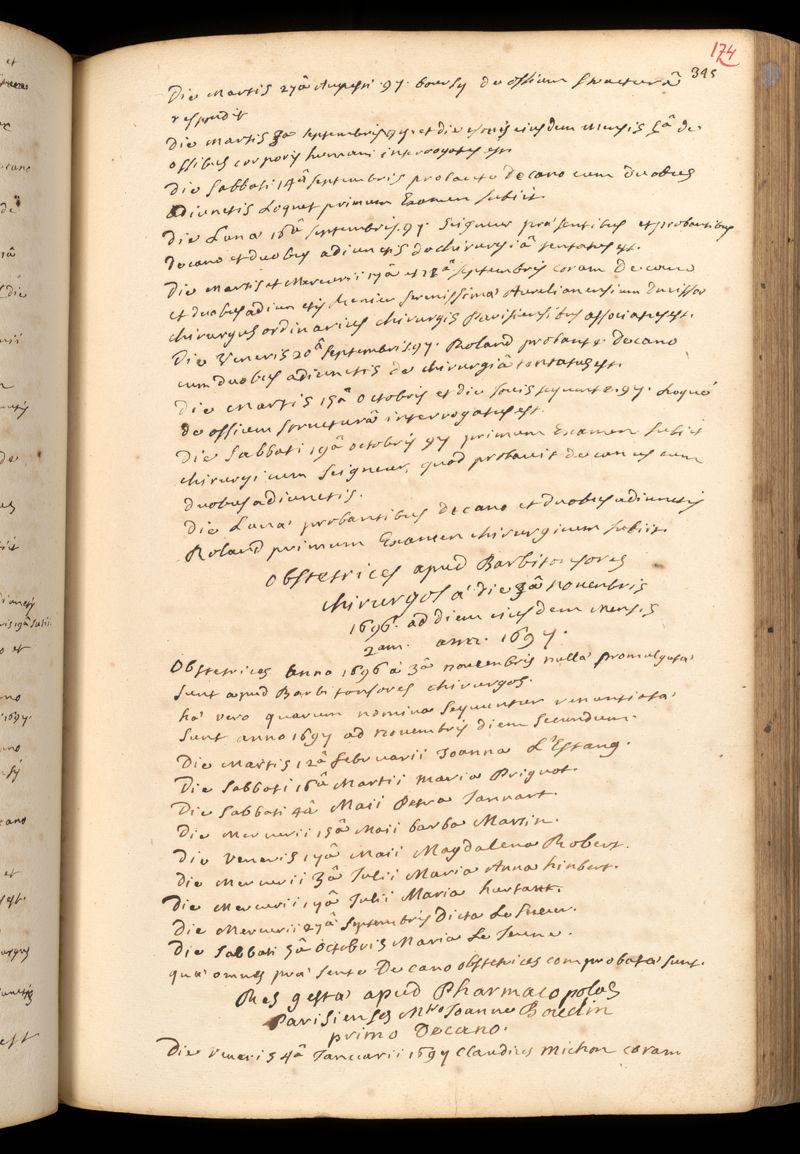 174
345
Die Martis 27â Augusti 97. boursy de ossium structurâ
respondit
Die Martis 3â septembris 97. et die Jovis eiusdem Mensis 5â de
ossibus corporis humani interrogatus est.
Die Sabbati 14â septembris probante Decano cum duobus
adiunctis Loquet primum Examen subiit.
Die Lunæ 16â septembris 97. Seigneur præsentibus et probantibus
Decano et duobus adiunctis de chirurgiâ tentatus est.
Die Martis et Mercurii 17â et 18â septembris coram Decano
et duobus adiunctis Menier serenissimæ Aurelianensium Ducissæ
chirurgus ordinarius chirurgis Parisiensibus associatus est.
Die Veneris 20â septembris 97. Roland probante Decano
cum duobus adiunctis de chirurgiâ tentatus est.
Die Martis 15â Octobris et die Jovis sequente 97. Loqué
de ossium structurâ interrogatus est.
Die Sabbati 19â octobris 97 primum Examen subiit
chirurgicum Seigneur, quod probavit decanus cum
duobus adiunctis.
Die Lunæ probantibus Decano et duobus adiunctis
Roland primum Examen chirurgicum subiit.
Obstetrices apud Barbitonsores
chirurgos a die 3â novembris
1696. ad diem eiusdem mensis
2am. anni 1697.
Obstetrices anno 1696 a 3â novembris nullæ promulgatæ
sunt apud Barbitonsores chirurgos.
hæ vero quarum nomina sequuntur renuntiatæ
sunt anno 1697 ad novembris diem secundum.
Die Martis 12â februarii Joanna L'Estang.
Die Sabbati 16â Martii maria Prignot.
Die Sabbati 4â Maii Petra Jannart.
Die Mercurii 15â Maii barba Martin.
Die Veneris 17â Maii Magdalena Robert.
Die Mercurii 3â Julii Maria Anna hinbert.
Die Mercurii 17â Julii Maria hurtant.
Die Mercurii 27â septembris Dicta Le Sueur.
Die Sabbati 5â Octobris Maria Le Jeune.
quæ omnes præsente Decano obstetrices comprobatæ sunt.
Res gestæ apud Pharmacopolas
Parisienses Mro Joanne Boudin
primo Decano.
Die Veneris 4â Januarii 1697 Claudius Michon coram